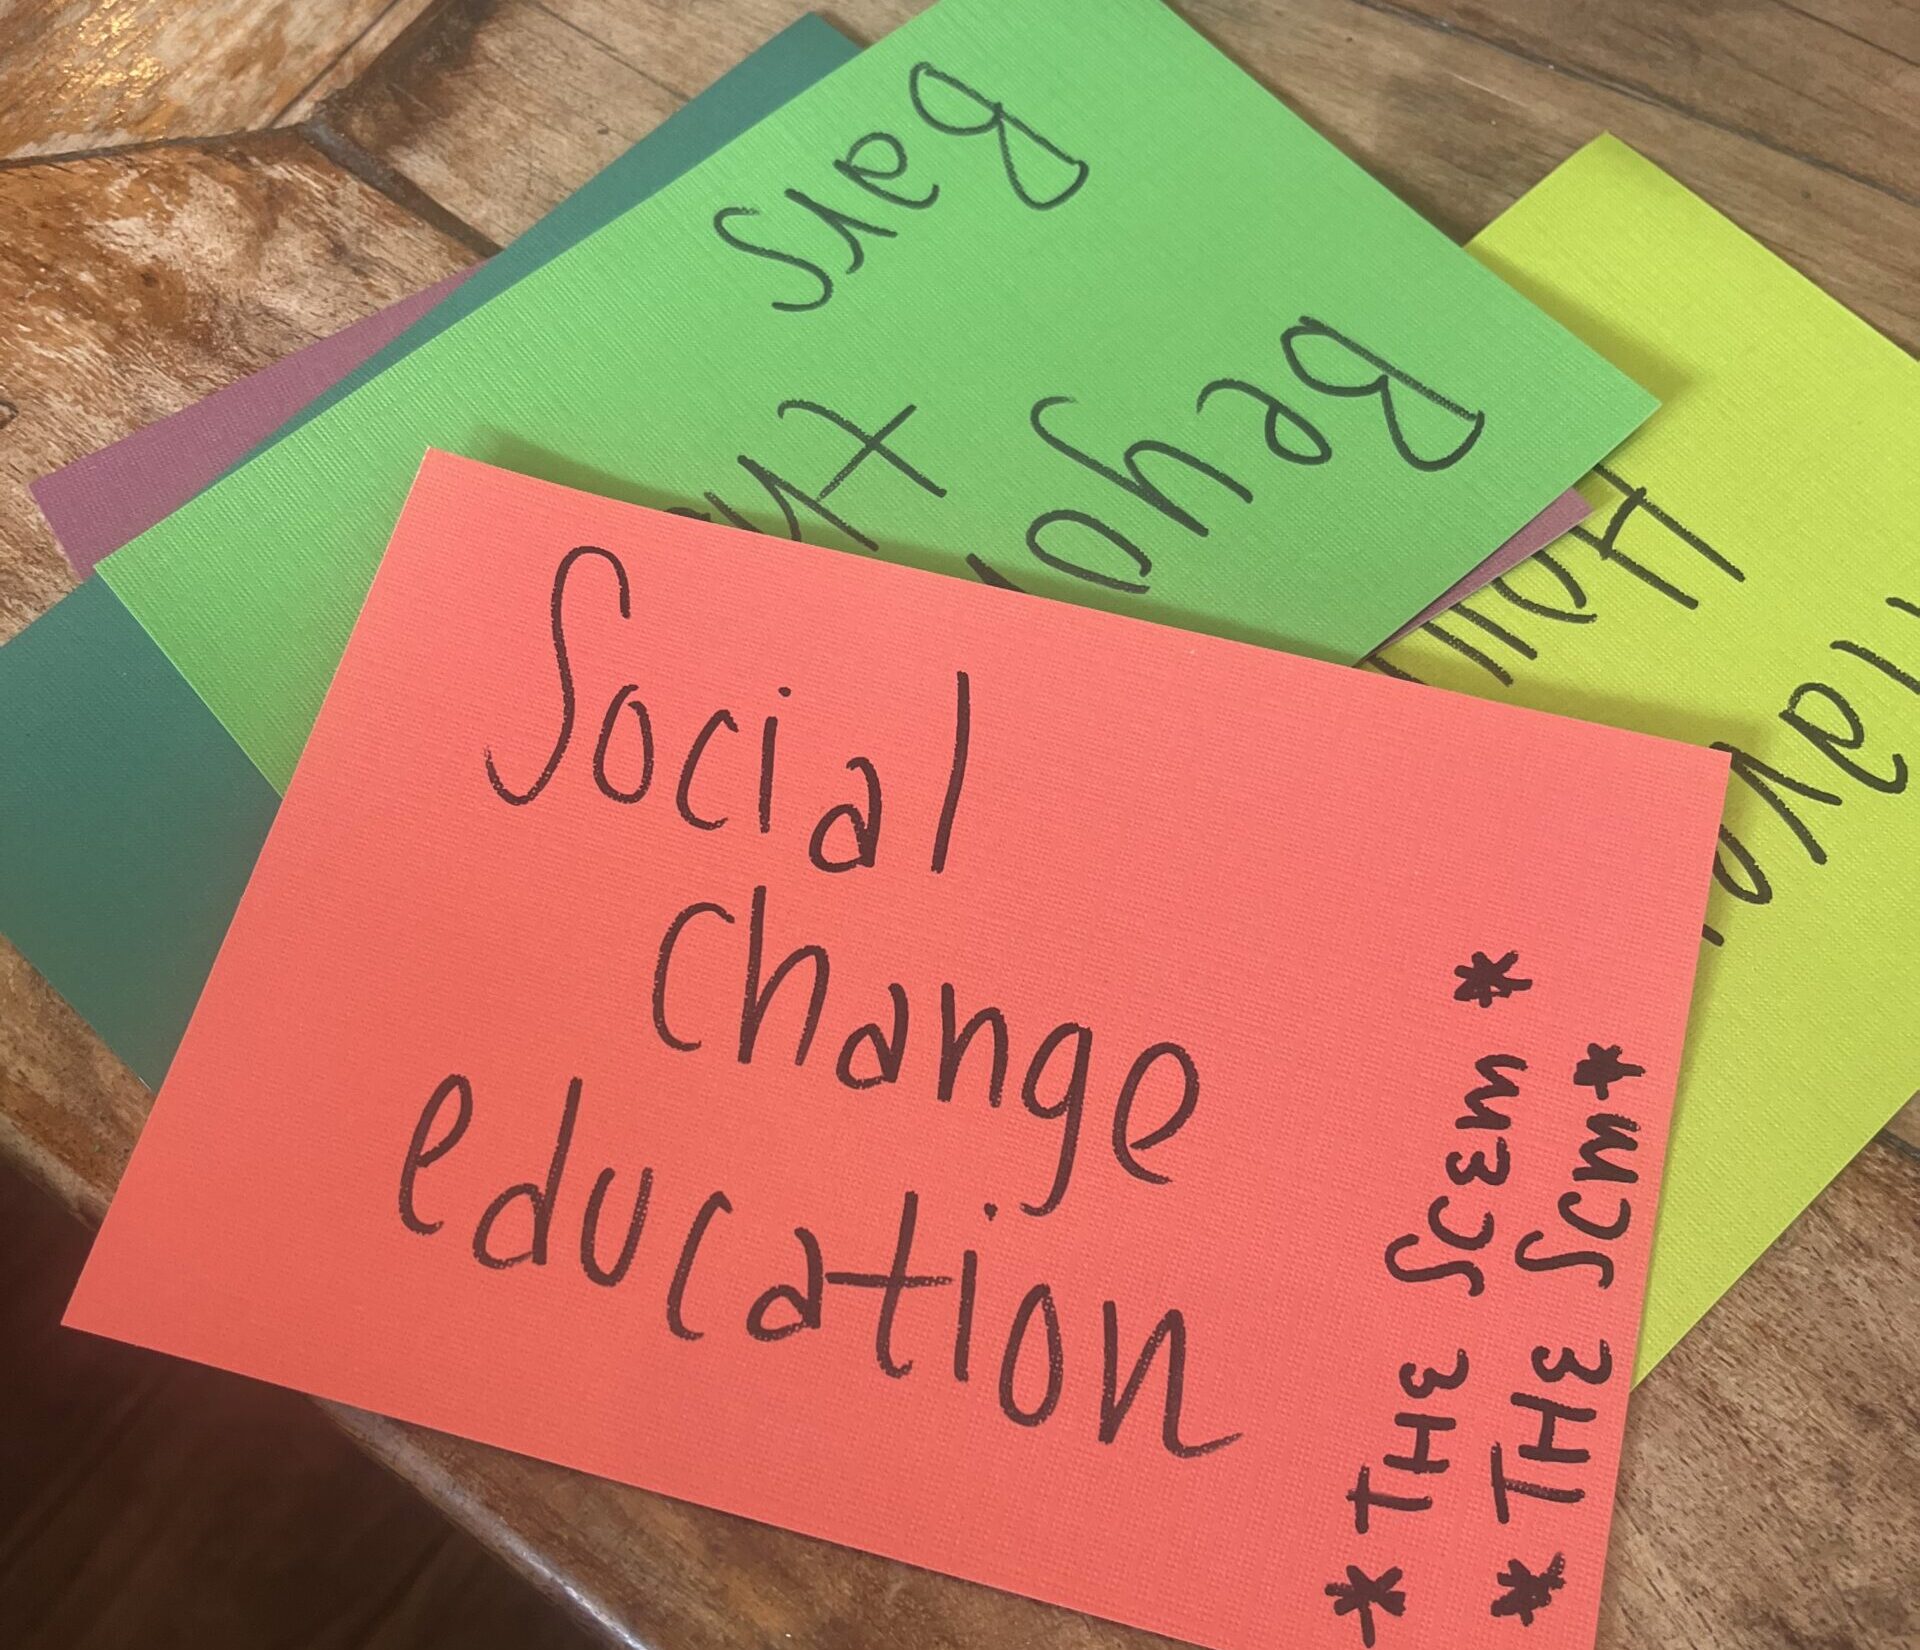 Social
change
education
*THE SCEM*
*THE SCM*
Beyo
the
Bars